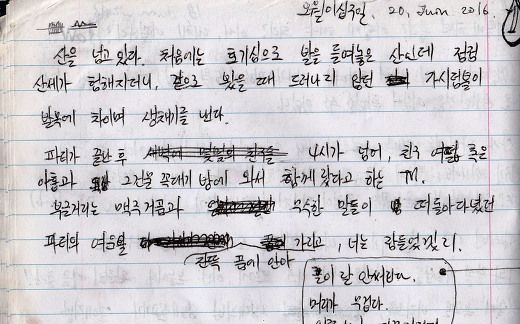 오월이십구일, 20, Juin 2016.
산을 넘고있다. 처음에는 호기심으로 발을 들여놓은 산인데 점점
산세가 험해지더니, 겉으로 봤을 때 드러나지 않던 가시덤불이
발목에 차이며 생채기를 낸다.
파티가 끝난 후 4시가 넘어, 친구 여덟 혹은
아홉과 그건물 꼭대기 방에 와서 함께 잤다고 하는 M.
부글거리는 맥주거품과 무수한 말들이 떠돌아다녔던
파티의 여운을 가리고, 너는 잠들었겠지.
잔뜩 끌어 안아
몸이 말 안써진다.
머리가 무겁다.